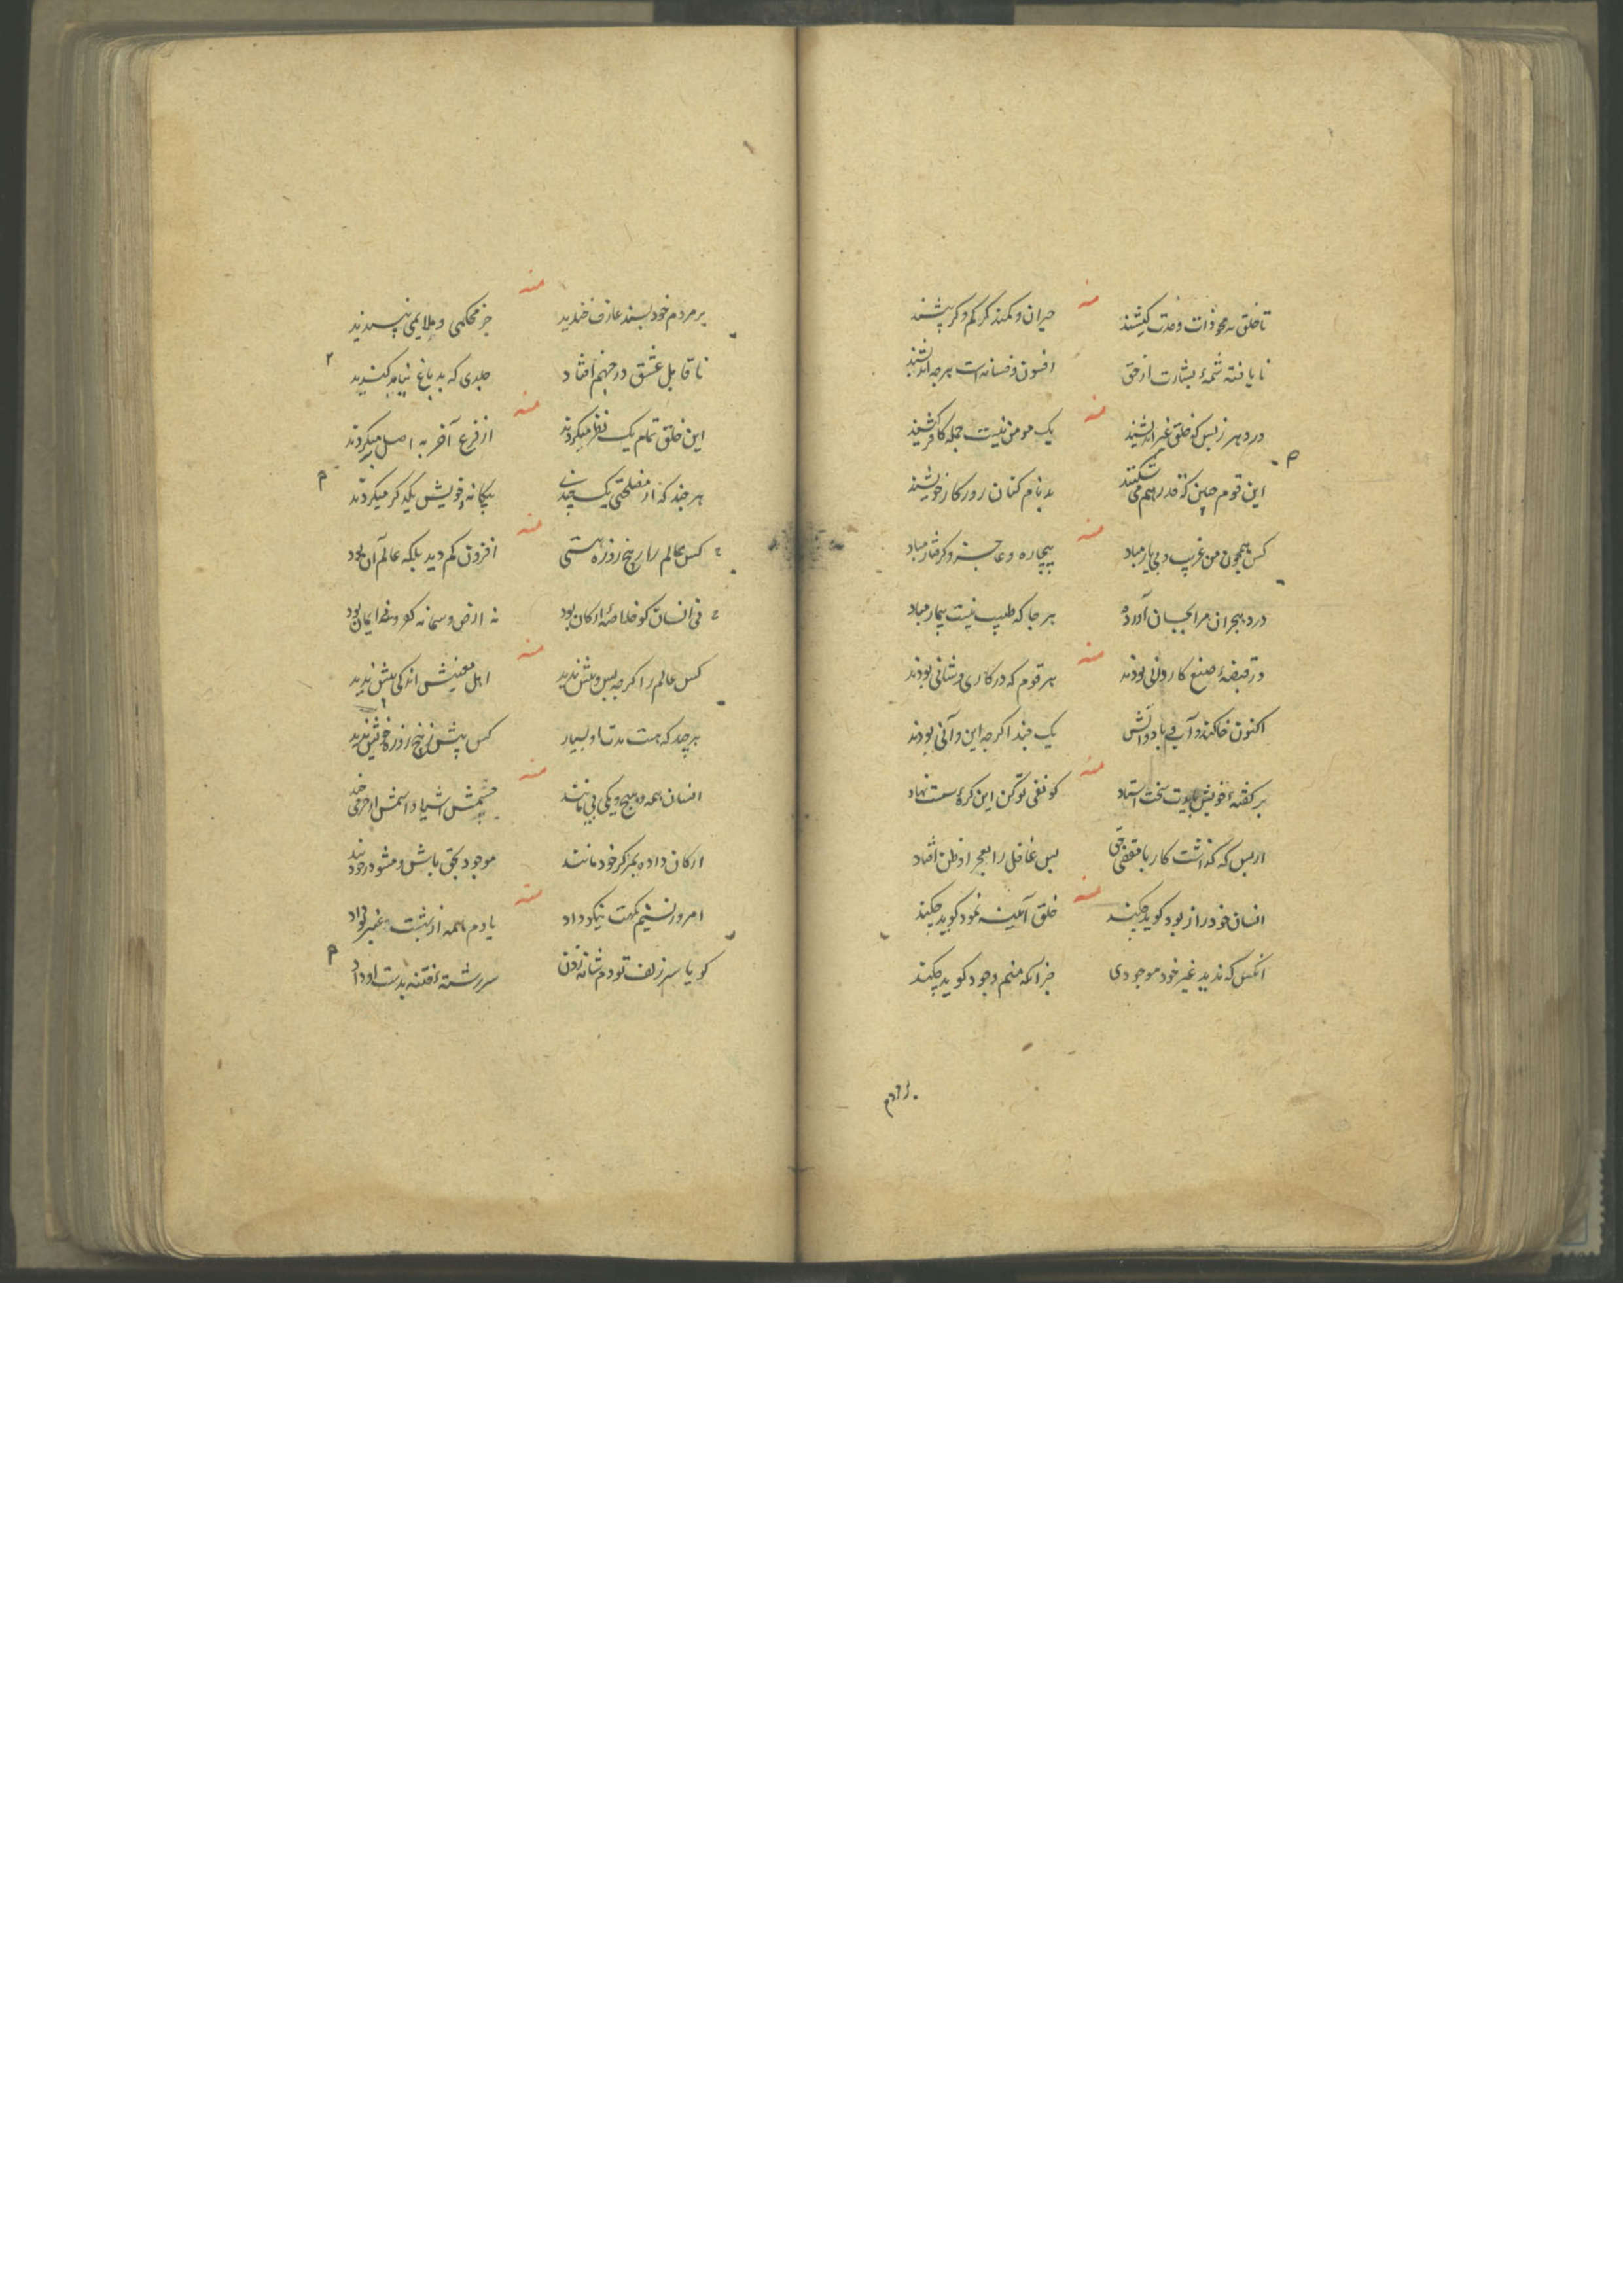 منه
تا خلق نه محو ذات وحدت کیشند
حیران و کمند گر کم و گر بیشند
نا یافته شمهٔ بشارت از حق
افسون و فسانه است هرچه اندیشند
منه
در دهر ز بس که خلق غیر اندیشند
یک مومن نیست جمله کافر کیشند
این قوم چنین که قدر هم می شکنند
بدنام کنان روزکار خویشند
منه
کس همچون من غریب و بی یار مباد
بیچاره و عاجز و گرفتار مباد
درد هجران مرا بجان آورده
هرجا که طبیب نیست بیمار مباد
منه
در قبضهٔ صنع کاروانی بودند
هر قوم که در کاری و شانی بودند
اکنون خاکند و آب و باد و آتش
یک چند اگرچه این و آنی بودند
منه
بر گفتهٔ خویش بایدت سخت استاد
کو نفی تو کن این کرهٔ سست نهاد
از بس که گذاشت کار با حق
بس غافل را بعجز از ظن افتاد
منه
انسان خود را ز بود گوید چکند
خلق آیینه نمود گوید چکند
آنکس که ندید غیر خود موجودی
جز آنکه منم وجود گوید چکند
امروز
منه
بر مردم خود پسند عارف خندید
جز محکمی و ملایمی نپسندید
نا قابل عشق در جهنم افتاد
جلدی که بدباغ نیامد گندید
منه
این خلق تمام یک نفر میکردند
از فرع آخر به اصل میکردند
هرچند که از مصلحتی یک چندی
بیکانه و خویش یکدکر میکردند
منه
کس عالم را ز پنج روزه هستی
افزون کم دید بلکه عالم آن بود
نی انسان کو خلاصهٔ ارکان بود
نه ارض و سما نه کفر و نی ایمان بود
منه
کس عالم را کرچه بس و بیش ندید
اهل معنیش اندکی بیش ندید
هرچند که هست مدت او بسیار
کس بیش ز پنج روزهٔ خویش ندید
منه
انسان همه و هیچ و یکی بی مانند
چشمش اشیا و اسمش
ارکان داده بمرکز خود مانند
موجود بحق باش و مشو در خود بند
منه
امروز نسیم نکهت نیکو داد
یادم همه از بنفشه
گویا سر زلف تو دم شانه زدن
سررشتهٔ فتنه بدست او داد